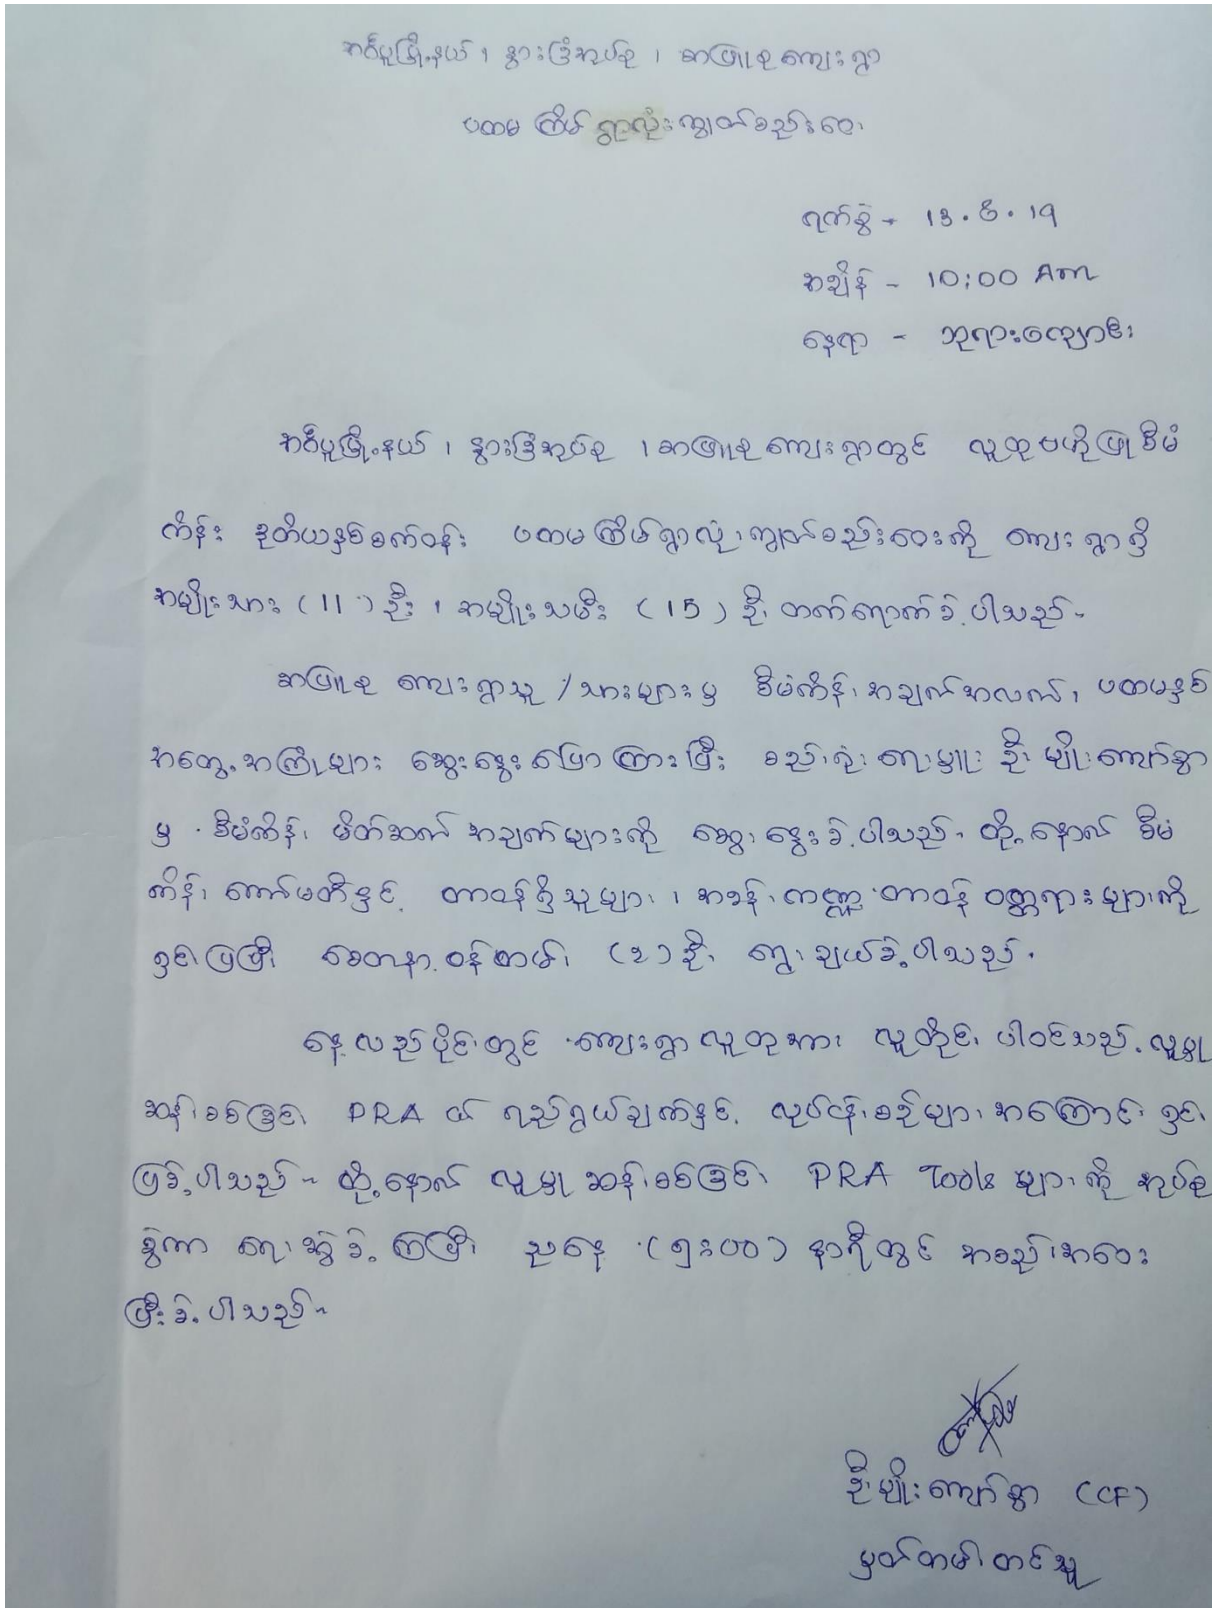 အင်္ဂပူမြို့နယ်၊ နွားခြံအုပ်စု၊ ဆာဖြူစုကျေးရွာ
ပထမ ကြိမ် ရွာလုံးကျွတ်စည်းဝေး
ရက်စွဲ - 13.5.19
အချိန် - 10:00 Am
နေရာ - ဘုရားကျောင်း
မြို့နယ်၊ နွားခြံအုပ်စု၊ ဆာဖြူစုကျေးရွာတွင် လူထုဗဟိုပြုစီမံ
ကိန်း ဒုတိယနှစ်စက်ဝန်း ပထမကြိမ်ရွာလုံးကျွတ်စည်းဝေးကို ကျေးရွာရှိ
အမျိုးသား (11) ဦး၊ အမျိုးသမီး (15) ဦး တက်ရောက်ခဲ့ပါသည်။
ဆာဖြူစု ကျေးရွာသူ/သားများမှ စီမံကိန်းအချက်အလက်၊ ပထမနှစ်
အတွေ့အကြုံများ ဆွေးနွေးပြောကြားပြီး စည်းရုံးရေးမှူး ဦးမျိုးကျော်စွာ
မှ စီမံကိန်းမိတ်ဆက်အချက်များကို ဆွေးနွေးခဲ့ပါသည်။ ထို့နောက် စီမံ
ကိန်းကော်မတီနှင့် တာဝန်ရှိသူများ၊ အခန်းကဏ္ဍ တာဝန် ဝတ္တရားများကို
ရှင်းပြပြီး စေတနာ့ဝန်ထမ်း (၁) ဦး ရွေးချယ်ခဲ့ပါသည်။
နေ့လည်ပိုင်းတွင် ကျေးရွာလူထုအား လူတိုင်းပါဝင်သည့် လူမှု
ဆန်းစစ်ခြင်း PRA ၏ ရည်ရွယ်ချက်နှင့် လုပ်ငန်းစဉ်များအကြောင်း ရှင်း
ပြခဲ့ပါသည်။ ထို့နောက် လူမှုဆန်းစစ်ခြင်း PRA Tools များကို အုပ်စု
ခွဲကာ ရေးဆွဲခဲ့ကြပြီး ညနေ (၅:၀၀) နာရီတွင် အစည်းအဝေး
ပြီးခဲ့ပါသည်။
ဦးမျိုးကျော်စွာ (CF)
မှတ်တမ်းတင်သူ